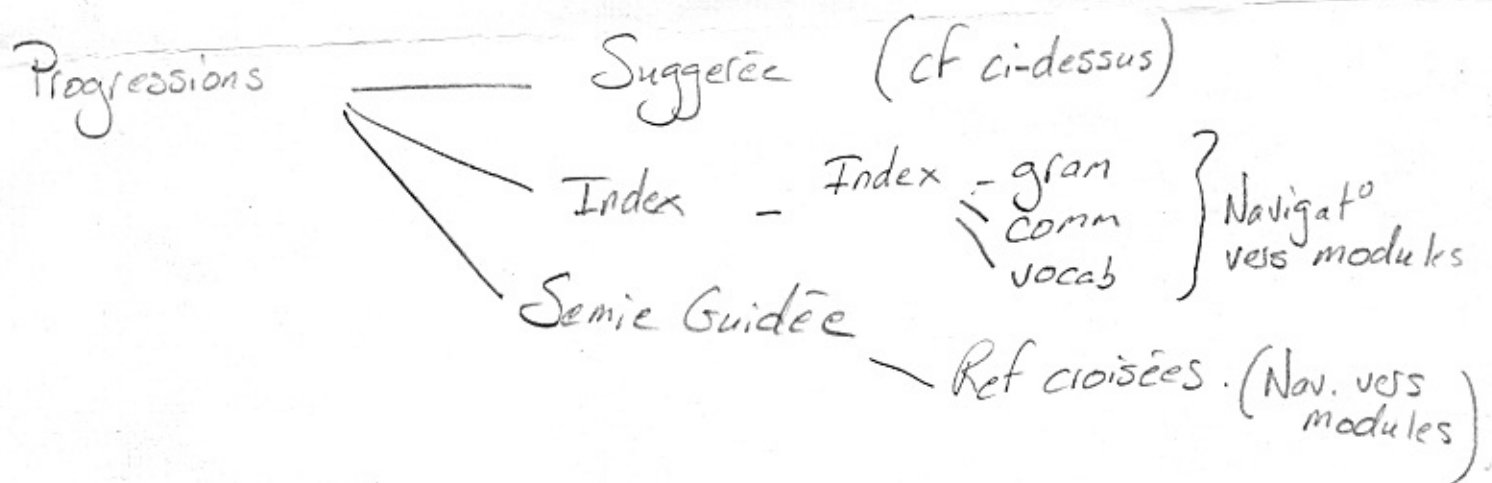 Progressions
Suggerée (cf ci-dessus)
Index - Index - gram
comm
vocab
Navigat°
vers modules
Semie Guidée
Ref croisées. (Nav. vers
modules)